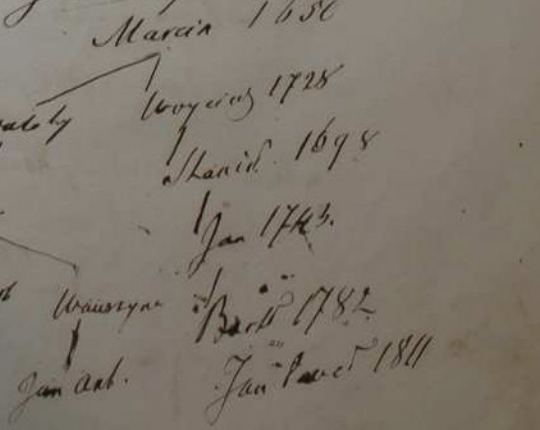 Marcin 1650
Woyciech 1728
Stanisł. 1698
Jan 1743.
Wawrzyn
Bartł 1782
Jan Ant.
Jan Paweł 1811